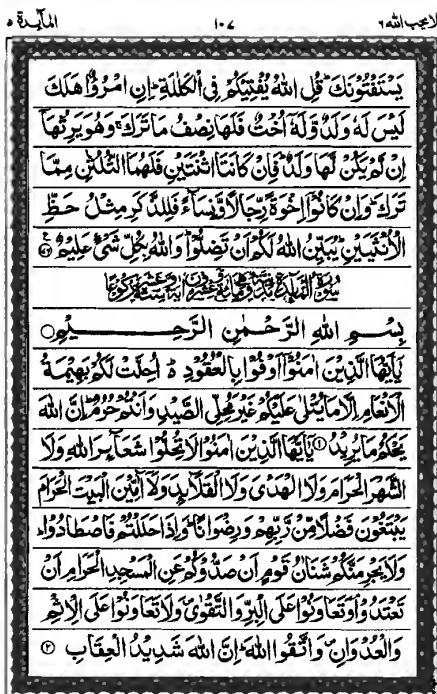 لا یحب الله ٦ ١٠٧ المآىدة ٥
يَسْتَفْتُوْنَكَ ؕ قُلِ اللّٰهُ يُفْتِيْكُمْ فِى الْكَلٰلَةِ ؕ اِنِ امْرُؤٌا هَلَكَ
لَيْسَ لَهٗ وَلَدٌ وَّلَهٗۤ اُخْتٌ فَلَهَا نِصْفُ مَا تَرَكَ ۚ وَهُوَ يَرِثُهَاۤ
اِنْ لَّمْ يَكُنْ لَّهَا وَلَدٌ ؕ فَاِنْ كَانَتَا اثْنَتَيْنِ فَلَهُمَا الثُّلُثٰنِ مِمَّا
تَرَكَ ؕ وَاِنْ كَانُوْۤا اِخْوَةً رِّجَالًا وَّنِسَآءً فَلِلذَّكَرِ مِثْلُ حَظِّ
الْاُنْثَيَيْنِ ؕ يُبَيِّنُ اللّٰهُ لَكُمْ اَنْ تَضِلُّوْا ؕ وَاللّٰهُ بِكُلِّ شَىْءٍ عَلِيْمٌ
بِسْمِ اللّٰهِ الرَّحْمٰنِ الرَّحِيْمِ
يٰۤاَيُّهَا الَّذِيْنَ اٰمَنُوْۤا اَوْفُوْا بِالْعُقُوْدِ ؕ اُحِلَّتْ لَكُمْ بَهِيْمَةُ
الْاَنْعَامِ اِلَّا مَا يُتْلٰى عَلَيْكُمْ غَيْرَ مُحِلِّى الصَّيْدِ وَاَنْتُمْ حُرُمٌ ؕ اِنَّ اللّٰهَ
يَحْكُمُ مَا يُرِيْدُ ١ يٰۤاَيُّهَا الَّذِيْنَ اٰمَنُوْا لَا تُحِلُّوْا شَعَآئِرَ اللّٰهِ وَلَا
الشَّهْرَ الْحَرَامَ وَلَا الْهَدْىَ وَلَا الْقَلَآئِدَ وَلَاۤ آٰمِّيْنَ الْبَيْتَ الْحَرَامَ
يَبْتَغُوْنَ فَضْلًا مِّنْ رَّبِّهِمْ وَرِضْوَانًا ؕ وَاِذَا حَلَلْتُمْ فَاصْطَادُوْا ؕ
وَلَا يَجْرِمَنَّكُمْ شَنَاٰنُ قَوْمٍ اَنْ صَدُّوْكُمْ عَنِ الْمَسْجِدِ الْحَرَامِ اَنْ
تَعْتَدُوْا ۘ وَتَعَاوَنُوْا عَلَى الْبِرِّ وَالتَّقْوٰى ۪ وَلَا تَعَاوَنُوْا عَلَى الْاِثْمِ
وَالْعُدْوَانِ ۪ وَاتَّقُوا اللّٰهَ ؕ اِنَّ اللّٰهَ شَدِيْدُ الْعِقَابِ ٢